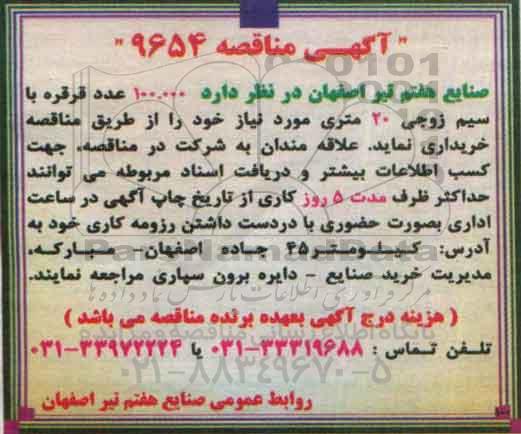 " آگهی مناقصه ۹۶۵۴ "
صنایع هفتم تیر اصفهان در نظر دارد ۱۰۰.۰۰۰ عدد قرقره با
سیم زوجی ۲۰ متری مورد نیاز خود را از طریق مناقصه
خریداری نماید. علاقه مندان به شرکت در مناقصه، جهت
کسب اطلاعات بیشتر و دریافت اسناد مربوطه می توانند
حداکثر ظرف مدت ۵ روز کاری از تاریخ چاپ آگهی در ساعت
اداری بصورت حضوری با دردست داشتن رزومه کاری خود به
آدرس: کیلومتر ۴۵ جاده اصفهان - مبارکه،
مدیریت خرید صنایع - دایره برون سپاری مراجعه نمایند.
( هزینه درج آگهی بعهده برنده مناقصه می باشد )
تلفن تماس : ۳۳۳۱۹۶۸۸-۰۳۱ یا ۳۳۹۷۲۲۲۴-۰۳۱
روابط عمومی صنایع هفتم تیر اصفهان
ParsNamadData
مرکز فرآوری اطلاعات پارس نماد داده ها
پایگاه اطلاع رسانی مناقصه و مزایده
۰۲۱-۸۸۳۴۹۶۷۰-۵